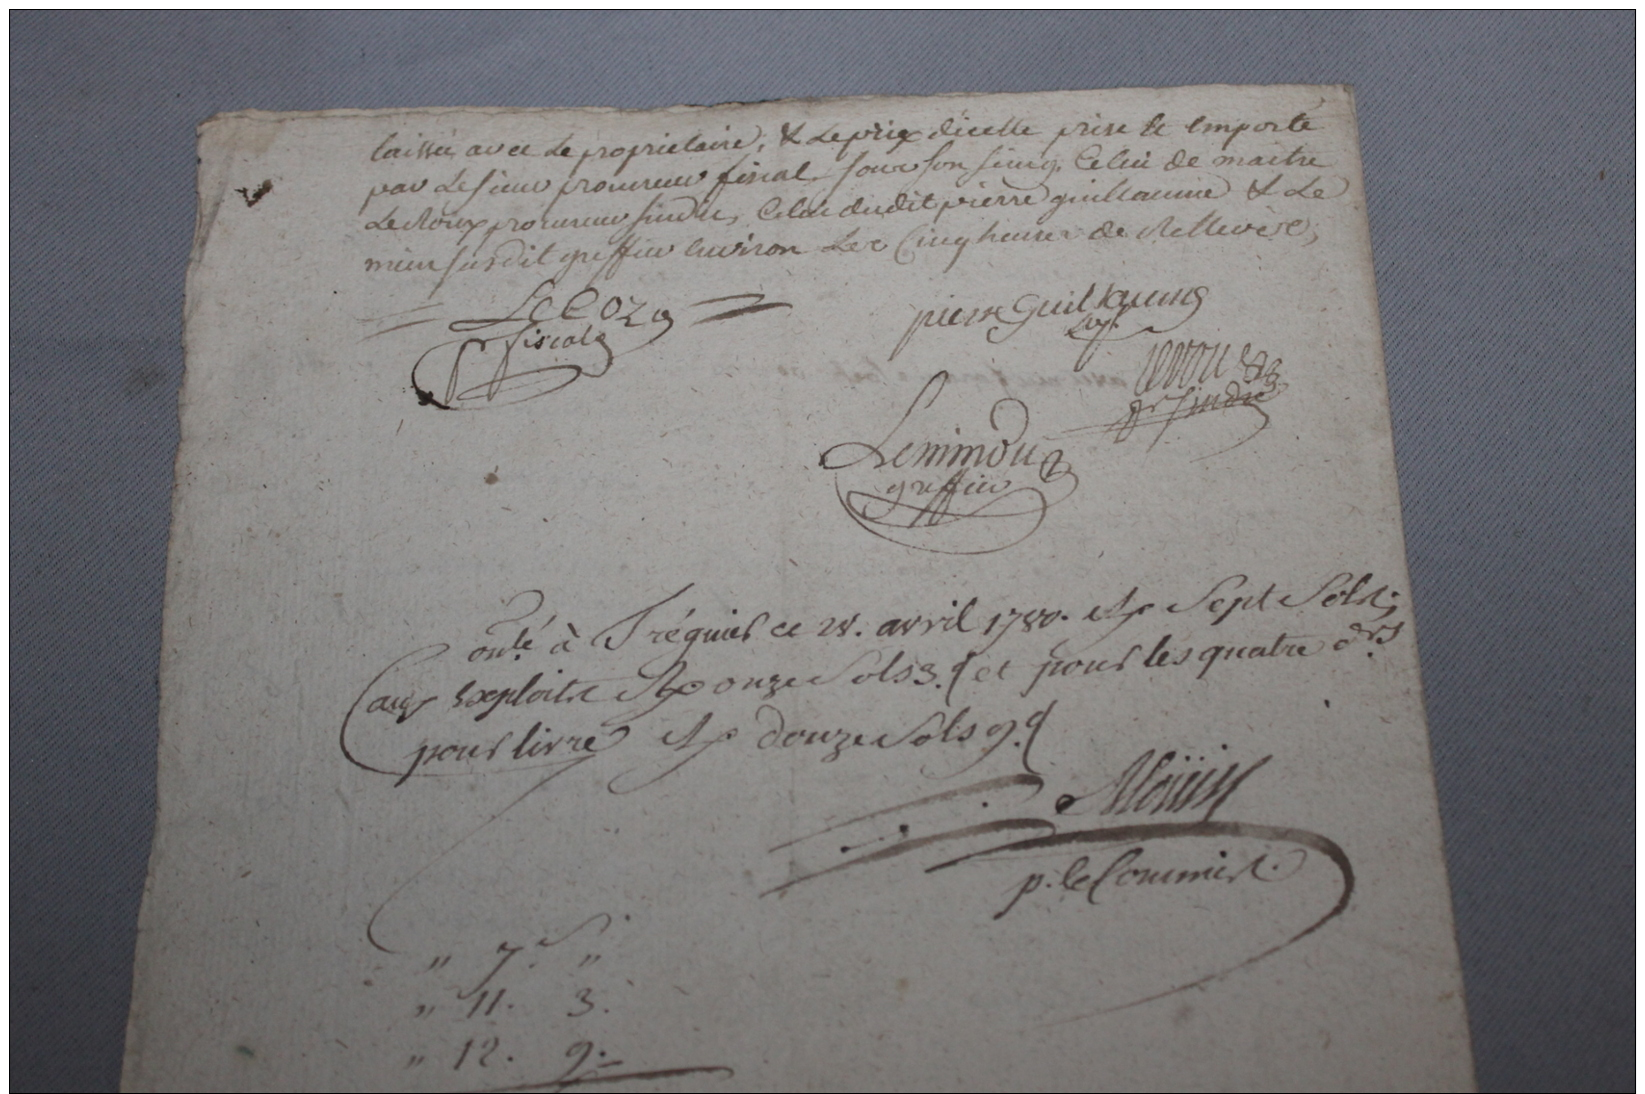 laissée avec le propriétaire, & le prix d'icelle prise & emporté
par le sieur procureur fiscal sous son seing, Celui de maitre
Le Roux procureur sindic, Celui dudit pierre guillaume & le
mien susdit greffier environ les Cinq heures de Rellevée;
LeCoz
pr fiscal
pierre Guillaume
Leroux
pr sindic
Lemindu
greffier
onlé à Tréguier ce 28. avril 1780. Rx Sept Sols;
aux Exploits Rx onze Sols 3.d et pour les quatre drs
pour livre Rx douze Sols 9.d
p. le Commis.
" 7.s "
" 11. 3.
" 12. 9.